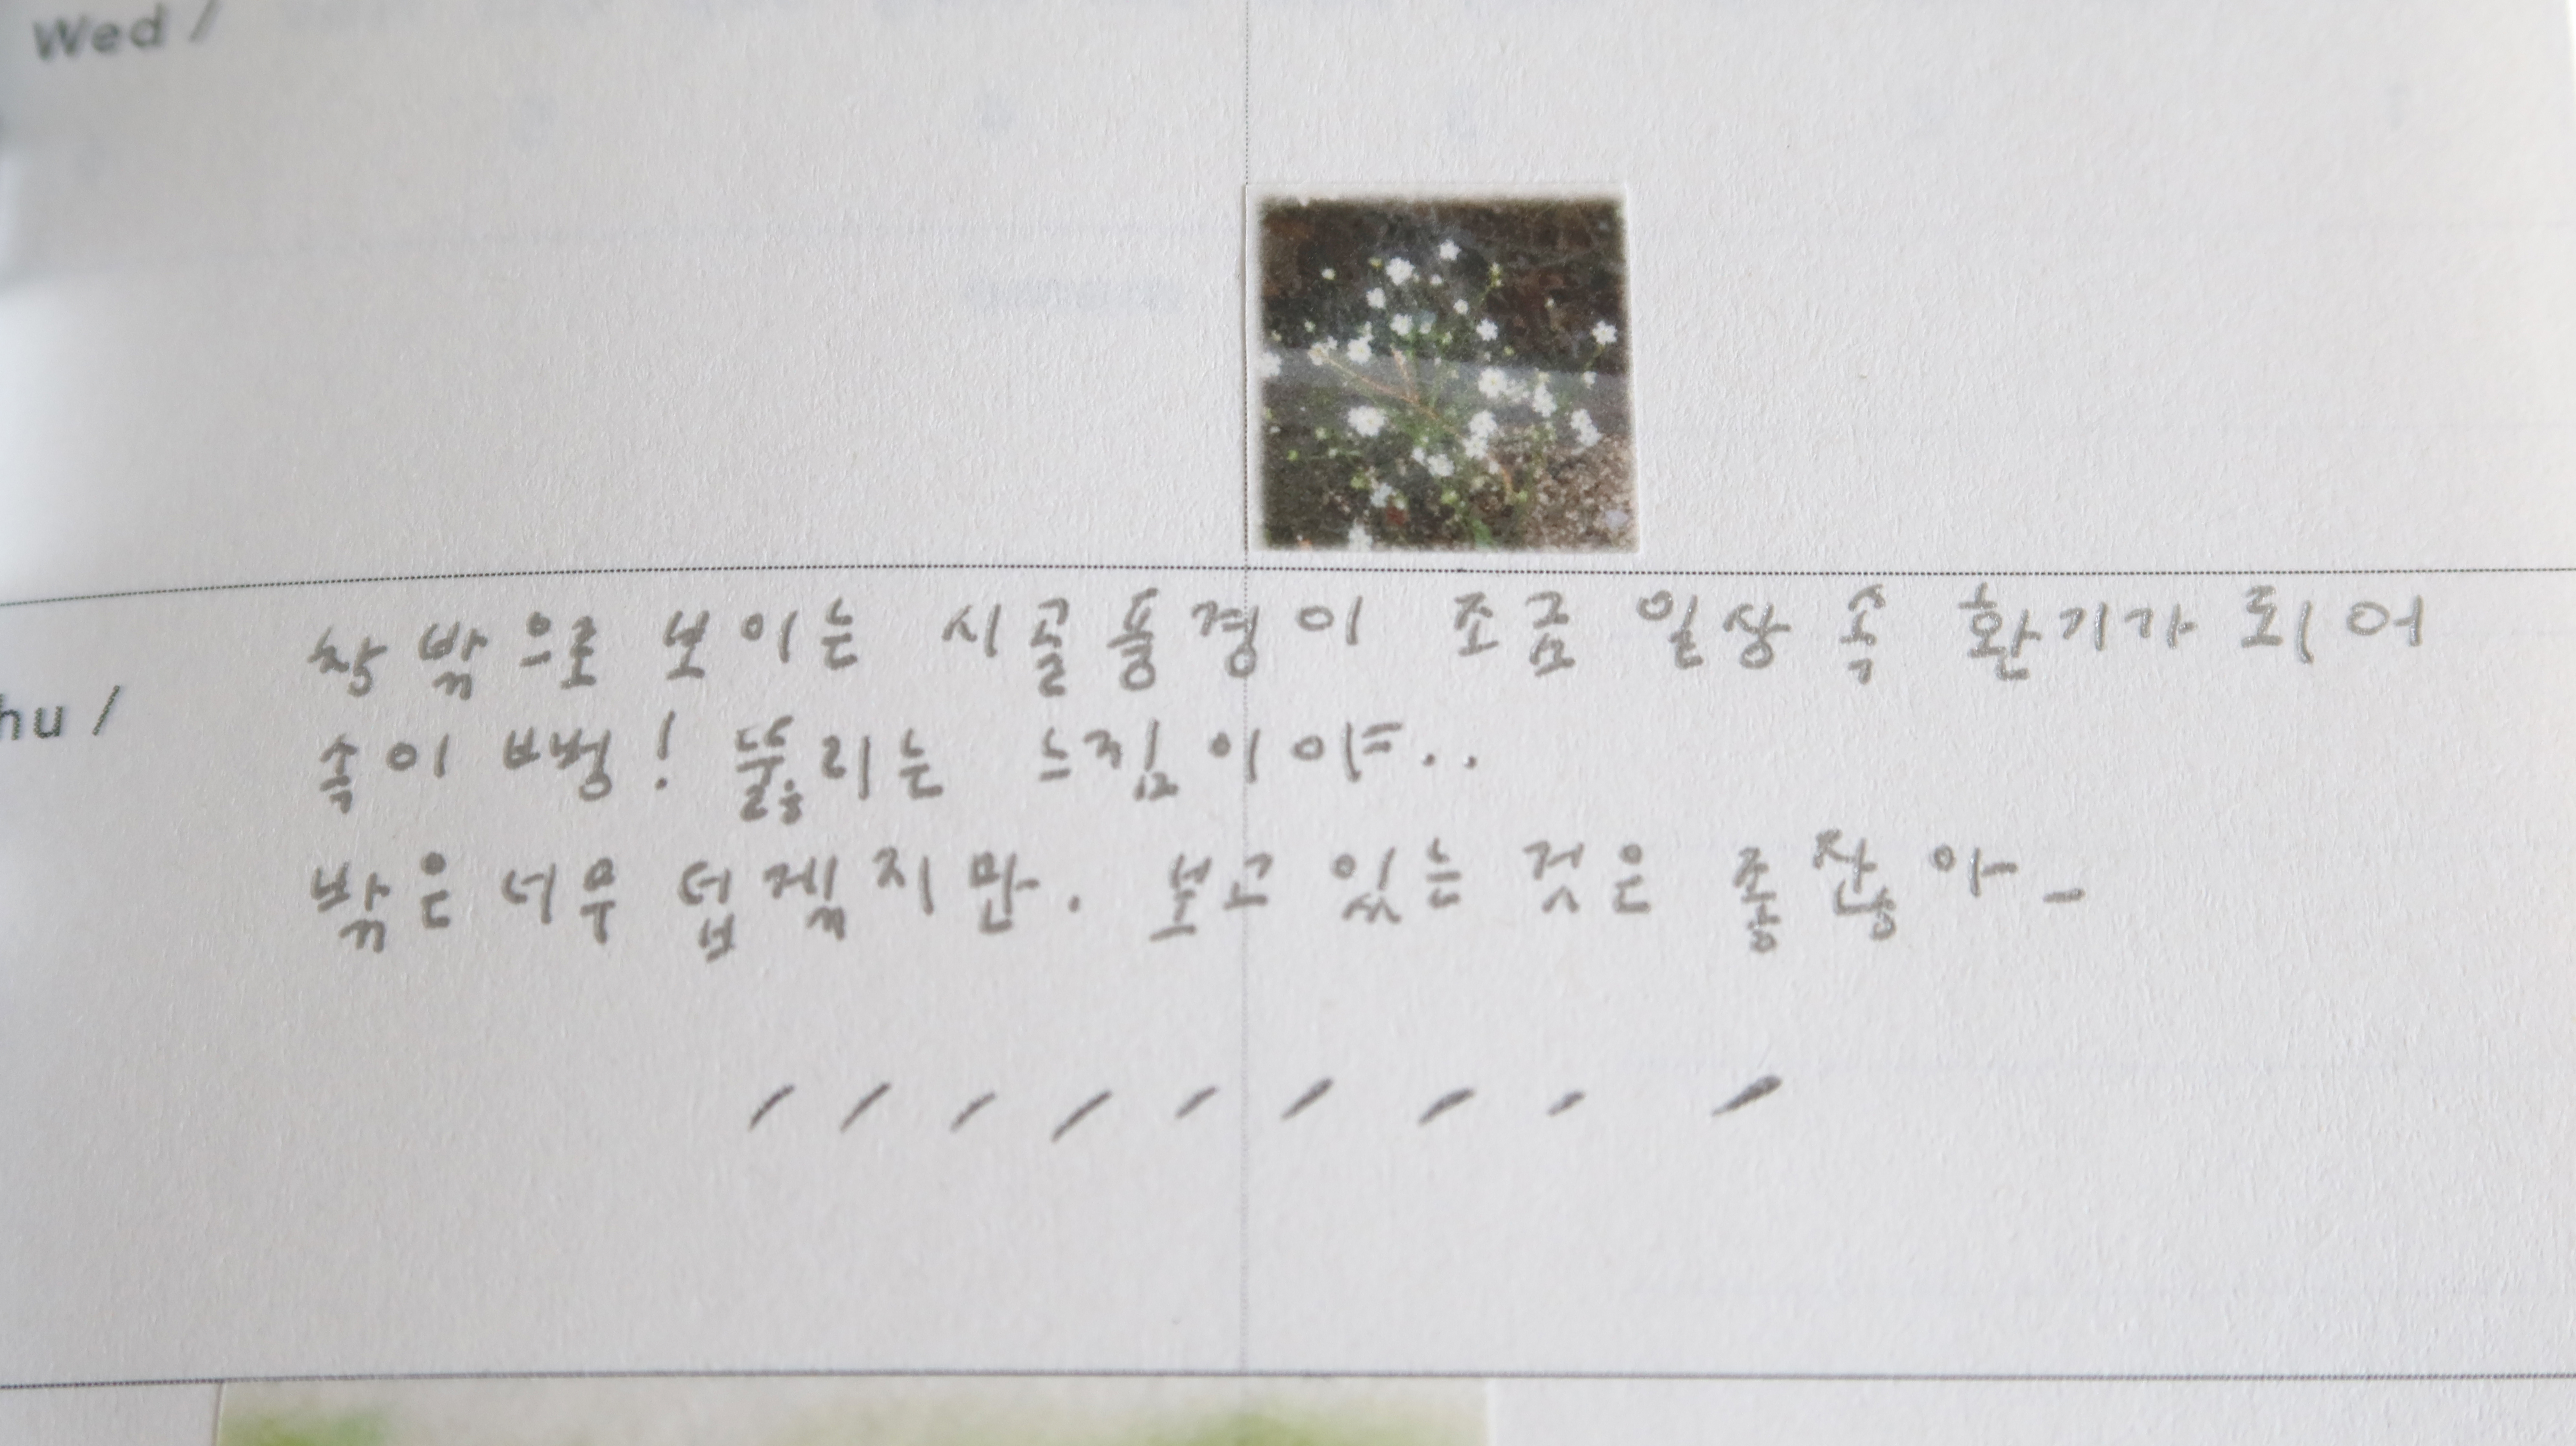 Wed /
창 밖으로 보이는 시골풍경이 조금 일상 속 환기가 되어
hu /
속이 뻥! 뚫리는 느낌이야..
밖은 너무 덥겠지만. 보고 있는 것은 좋잖아_